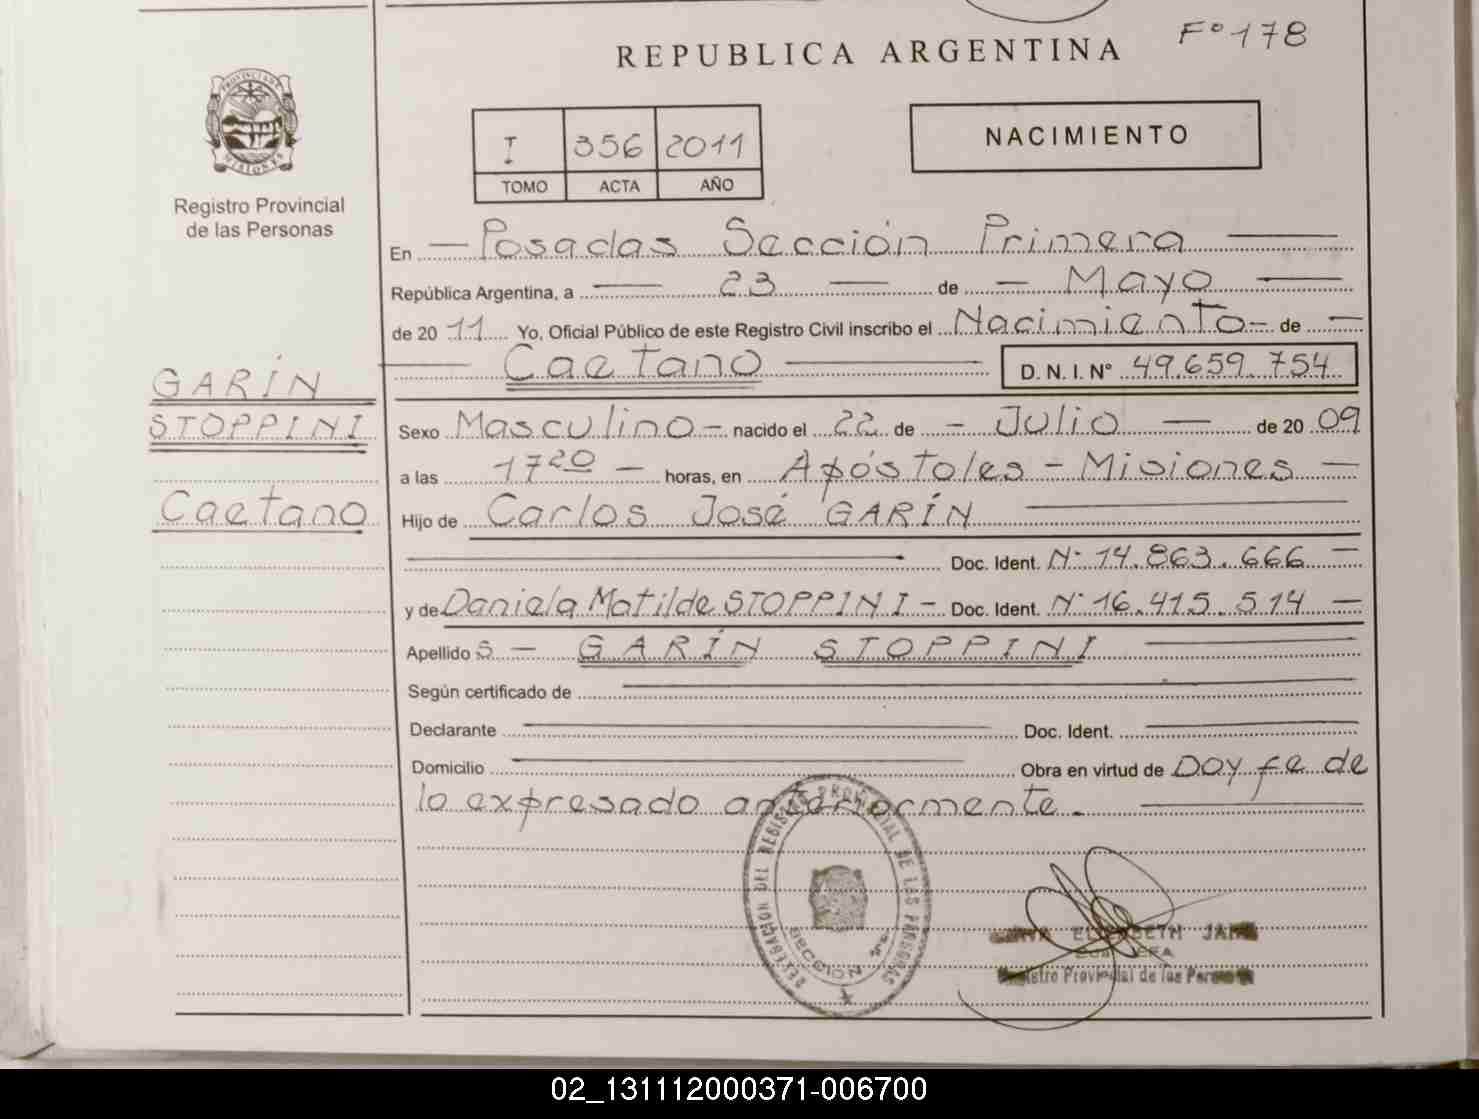 F° 178
REPUBLICA ARGENTINA
PROVINCIA DE MISIONES
Registro Provincial
de las Personas
I 356 2011
TOMO ACTA AÑO
NACIMIENTO
En Posadas Sección Primera
República Argentina, a 23 de Mayo
de 20 11 Yo, Oficial Público de este Registro Civil inscribo el Nacimiento de
Caetano D. N. I. N° 49.659.754
GARÍN
STOPPINI
Caetano
Sexo Masculino nacido el 22 de Julio de 20 09
a las 17 20 horas, en Apóstoles - Misiones
Hijo de Carlos José GARÍN
Doc. Ident. N° 14.863.666
y de Daniela Matilde STOPPINI Doc. Ident. N° 16.415.514
Apellido s GARÍN STOPPINI
Según certificado de
Declarante Doc. Ident.
Domicilio Obra en virtud de Doy fe de
lo expresado anteriormente.
DELEGACION DEL REGISTRO PROVINCIAL DE LAS PERSONAS
SECCION 1ra.
Registro Provincial de las Personas
02_131112000371-006700